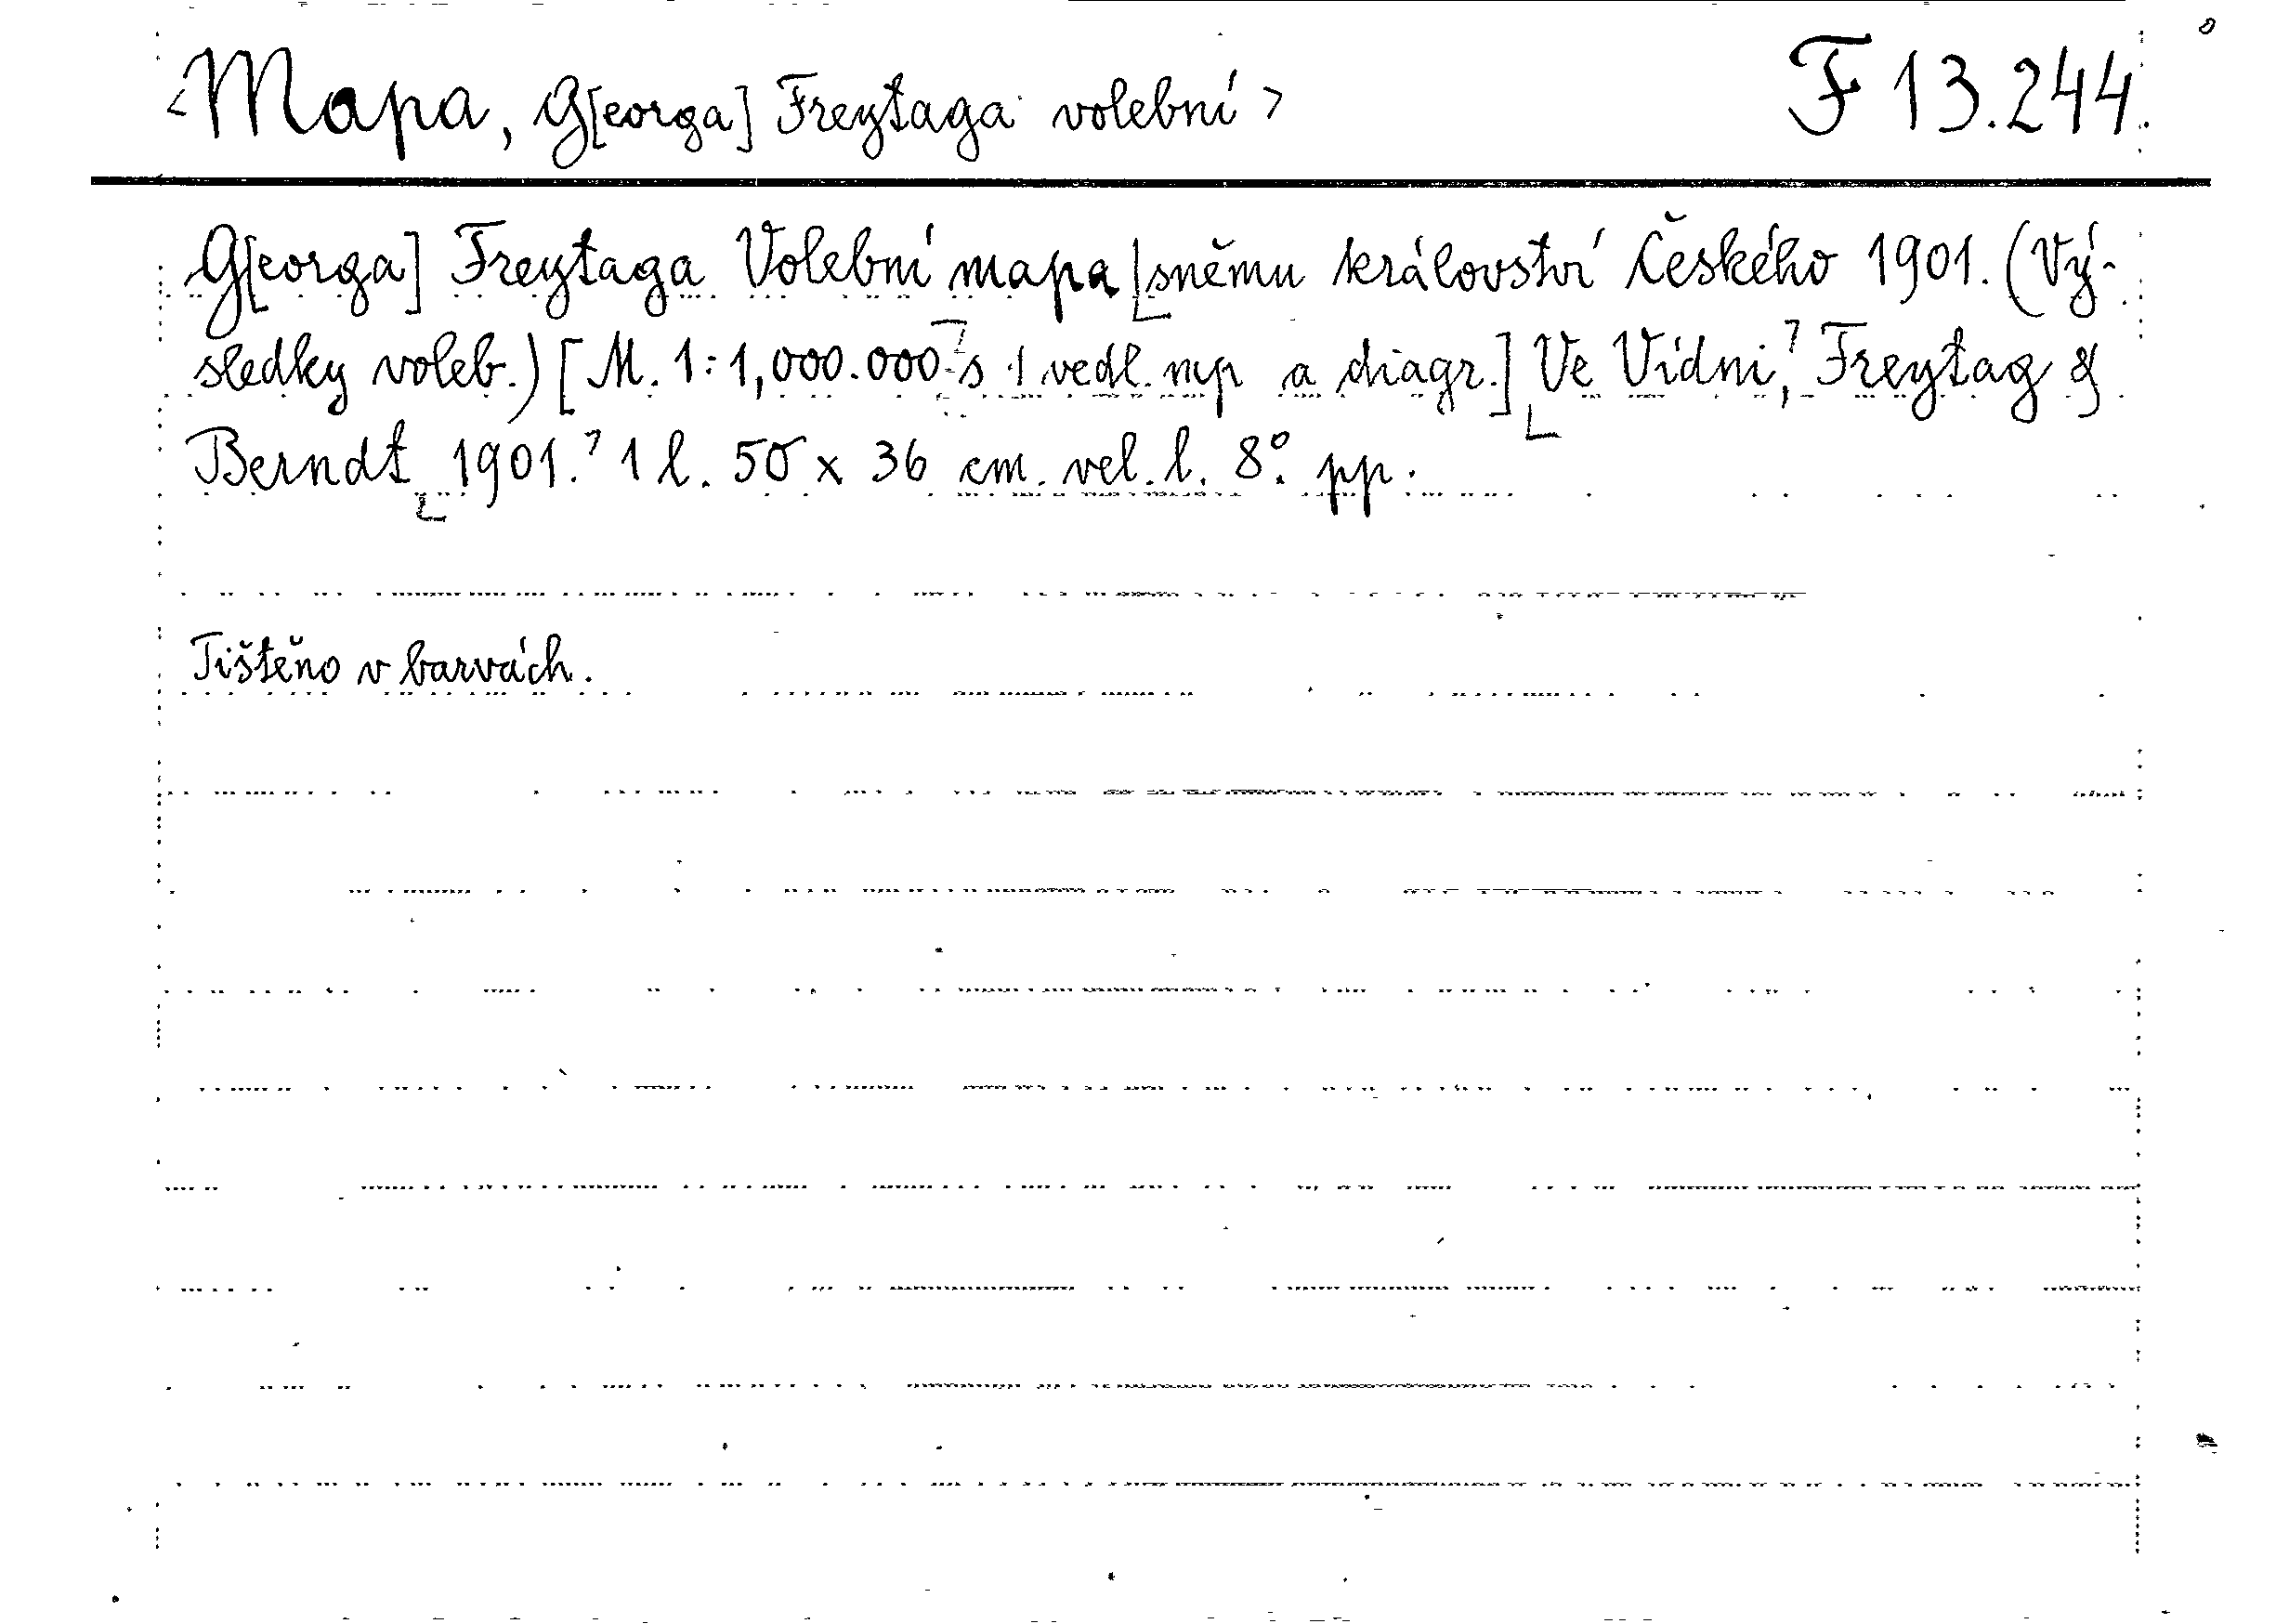 <Mapa, G[eorga] Freytaga volební> F 13.244.
G[eorga] Freytaga Volební mapa sněmu království Českého 1901. (Vý-
sledky voleb.) [M. 1:1,000.000 s 1 vedl. mp a diagr.] Ve Vídni, Freytag &
Berndt 1901. 1 l. 50 x 36 cm. vel. l. 8° pp.
Tištěno v barvách.